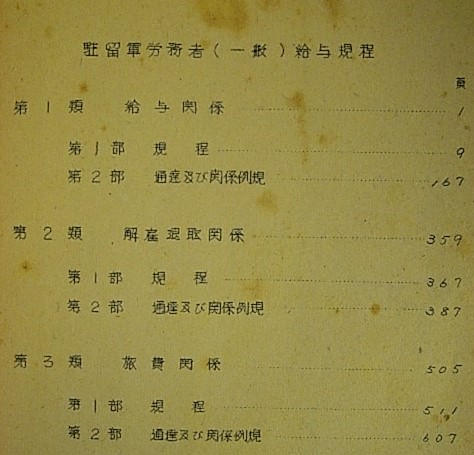 駐留軍労務者(一般)給与規程
頁
第1類 給与関係 1
第1部 規程 9
第2部 通達及び関係例規 167
第2類 解雇退取関係 359
第1部 規程 367
第2部 通達及び関係例規 387
第3類 旅費関係 505
第1部 規程 511
第2部 通達及び関係例規 607